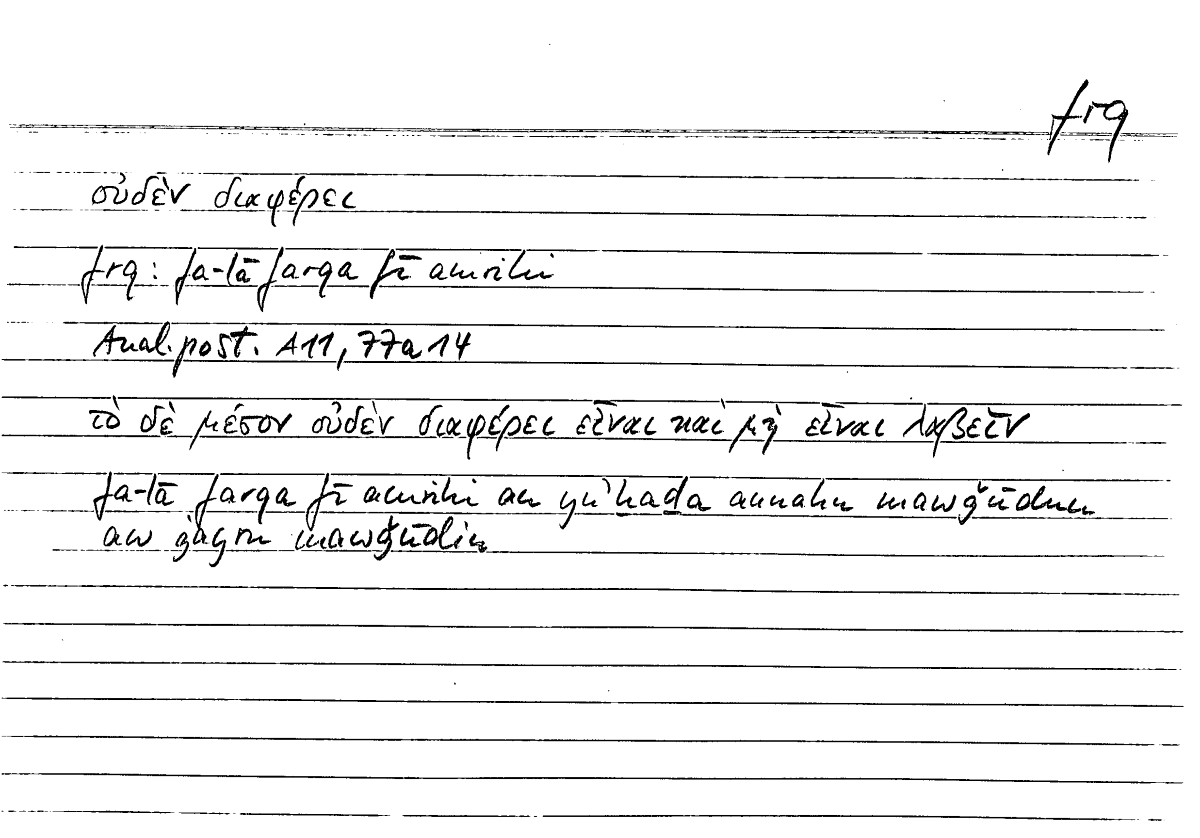 frq
οὐδὲν διαφέρει
frq: fa-lā farqa fī amrihi
Anal. post. A11, 77a14
τὸ δὲ μέσον οὐδὲν διαφέρει εἶναι καὶ μὴ εἶναι λαβεῖν
fa-lā farqa fī amrihi an yu'ḫaḏa annahu mawǧūdun
aw ġayru mawǧūdin